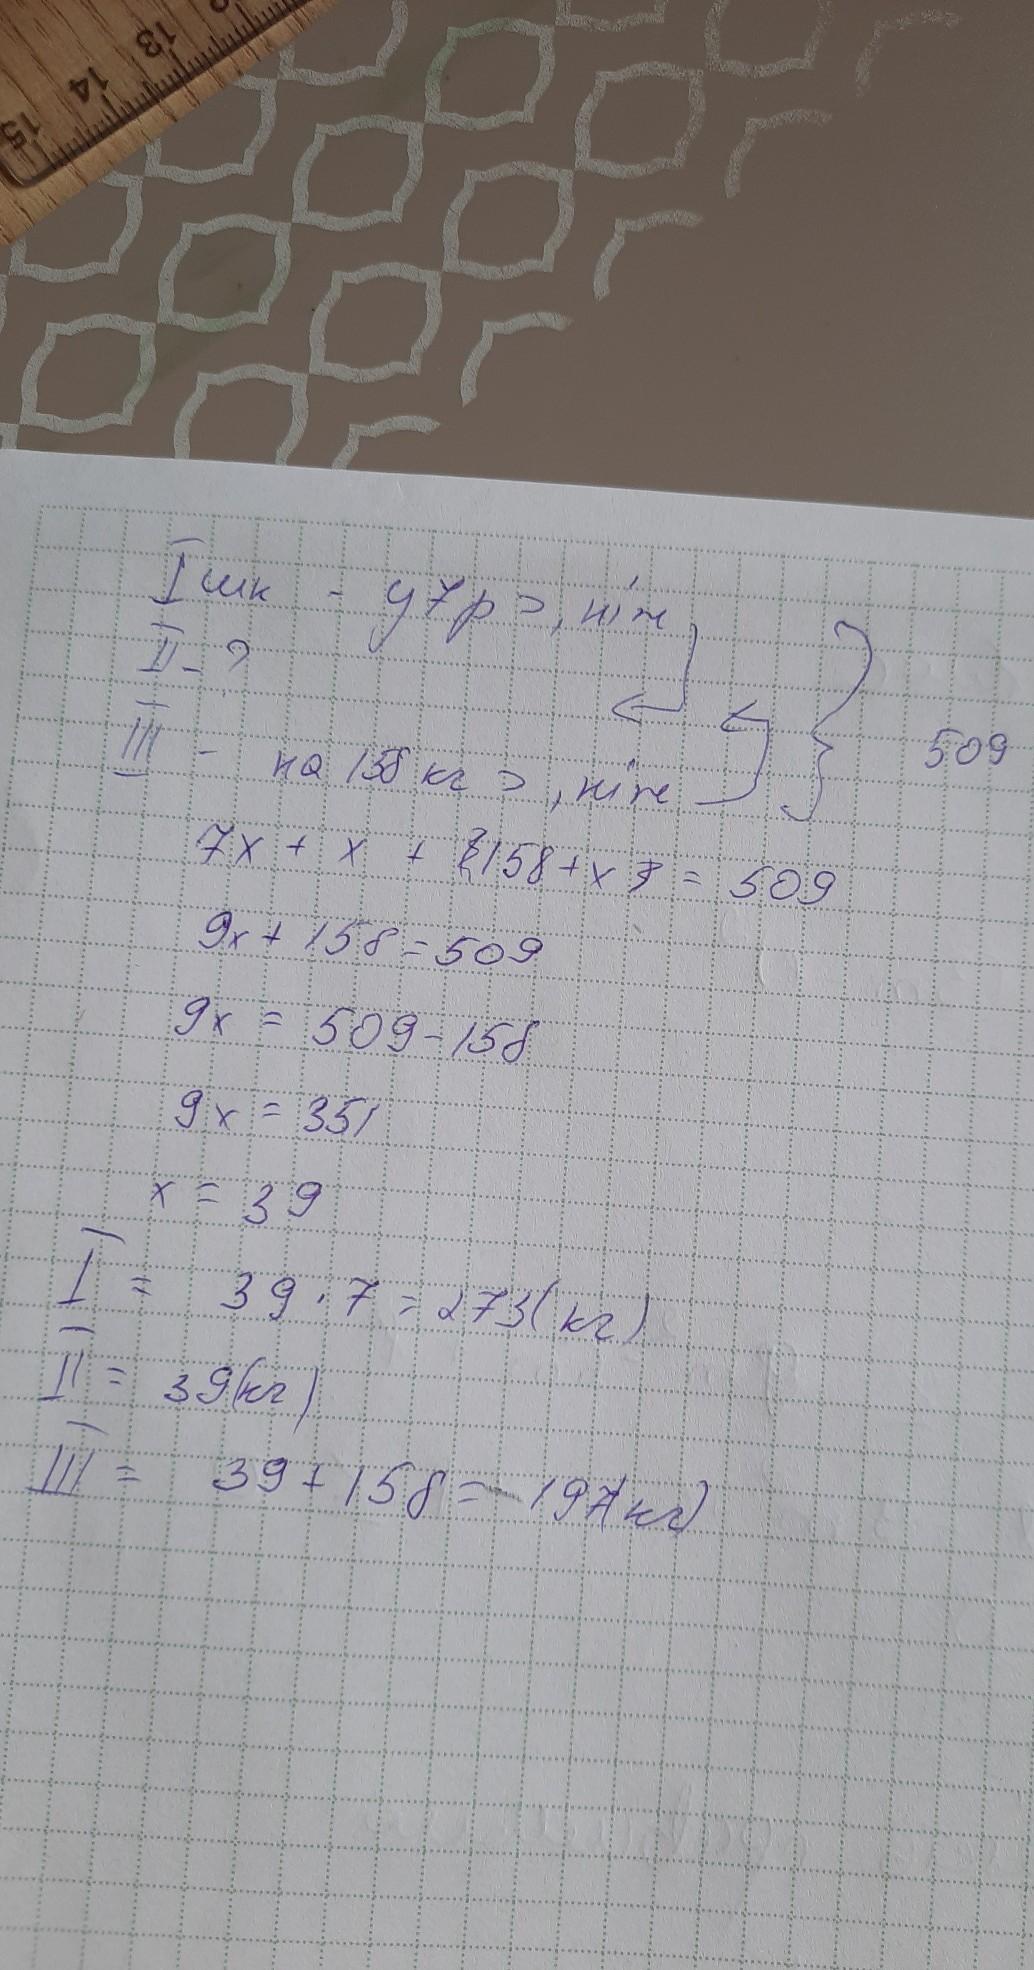 13
14
15
I шк - у 7р >, ніж
II - ?
III - на 158 кг >, ніж
509
7x + x + (158 + x) = 509
9x + 158 = 509
9x = 509 - 158
9x = 351
x = 39
I = 39 · 7 = 273 (кг)
II = 39 (кг)
III = 39 + 158 = 197 (кг)